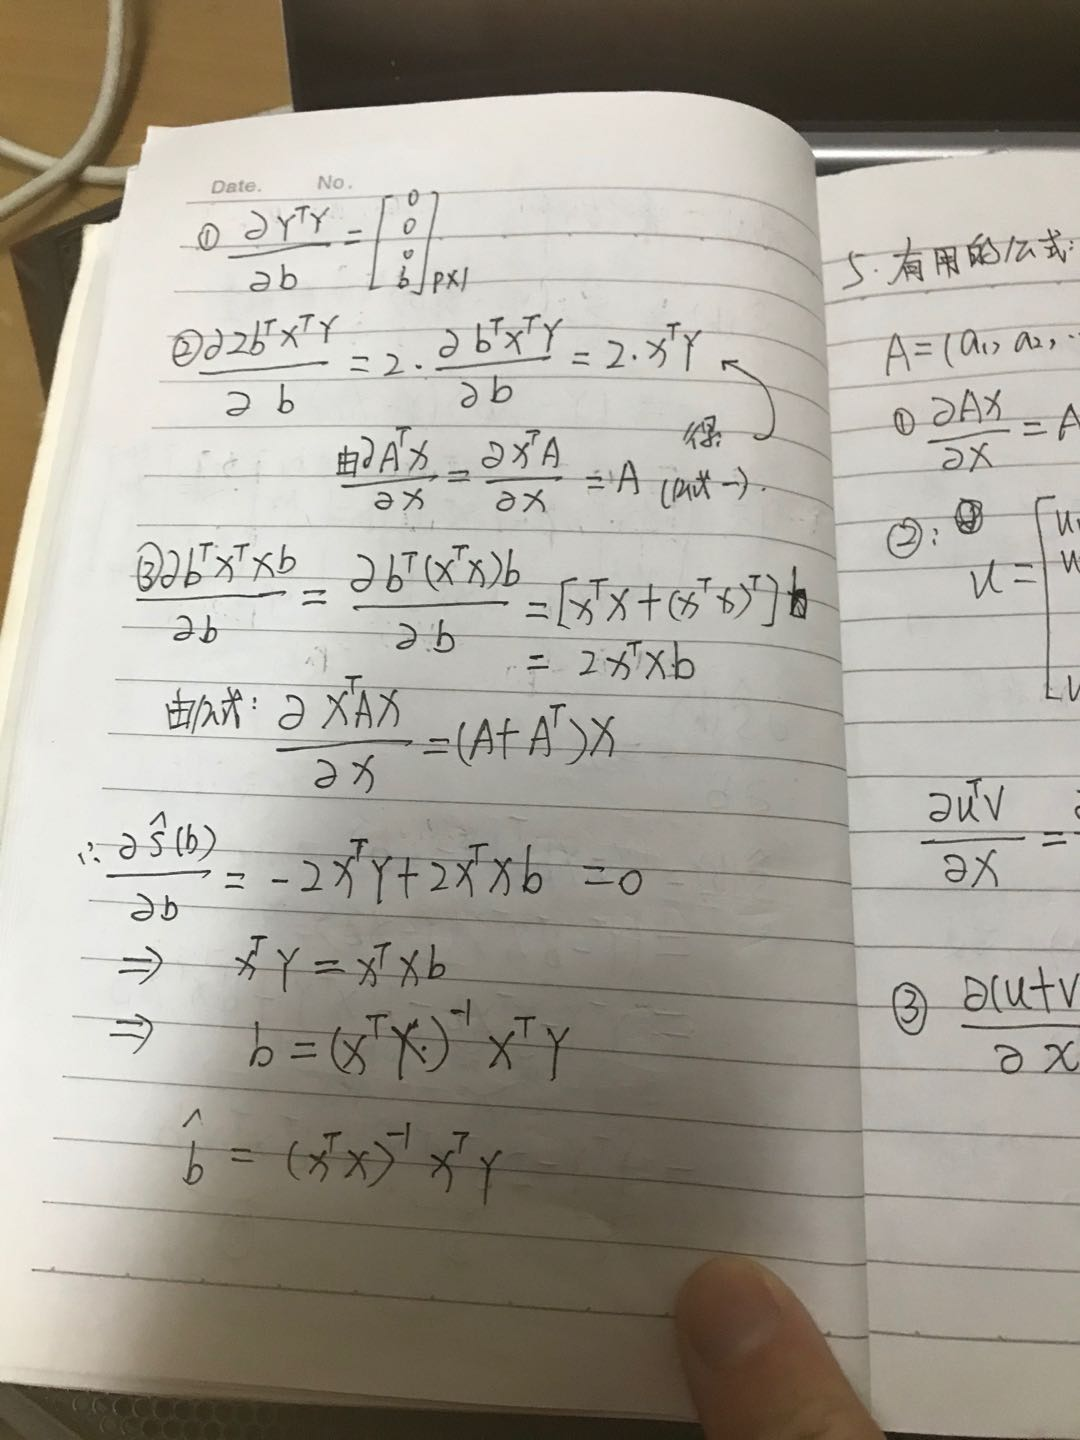 Date. No.
① ∂YᵀY/∂b = [0 0 0 b]p×1
② ∂2bᵀXᵀY/∂b = 2·∂bᵀXᵀY/∂b = 2·XᵀY
得
由∂AᵀX/∂X = ∂XᵀA/∂X = A
③ ∂bᵀXᵀXb/∂b = ∂bᵀ(XᵀX)b/∂b = [XᵀX+(XᵀX)ᵀ]b
= 2XᵀXb
由公式: ∂XᵀAX/∂X = (A+Aᵀ)X
∴ ∂Ŝ(b)/∂b = -2XᵀY+2XᵀXb = 0
⇒ XᵀY = XᵀXb
⇒ b = (XᵀX)⁻¹XᵀY
b̂ = (XᵀX)⁻¹XᵀY
5. 有用的公式:
A=(a₁, a₂, ·
① ∂AX/∂X = A
②:
u = [u₁
∂uᵀV/∂X =
③ ∂(u+V/∂X